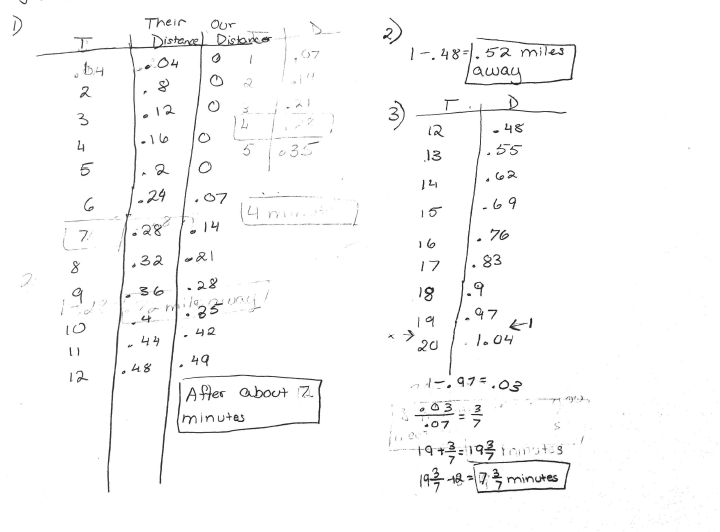 1)
T Their Distance Our Distance
.04 0
2 .8 0
3 .12 0
4 .16 0
5 .2 0
6 .24 .07
7 .28 .14
8 .32 .21
9 .36 .28
10 .4 .35
11 .44 .42
12 .48 .49
After about 12
minutes
D
1 .07
2
3 .21
4
5 .035
2)
1-.48= .52 miles
away
3)
T D
12 .48
13 .55
14 .62
15 .69
16 .76
17 .83
18 .9
19 .97
x → 20 1.04
1-.97=.03
.03/.07 = 3/7
19+3/7=19 3/7 minutes
19 3/7 -12 = 7 3/7 minutes